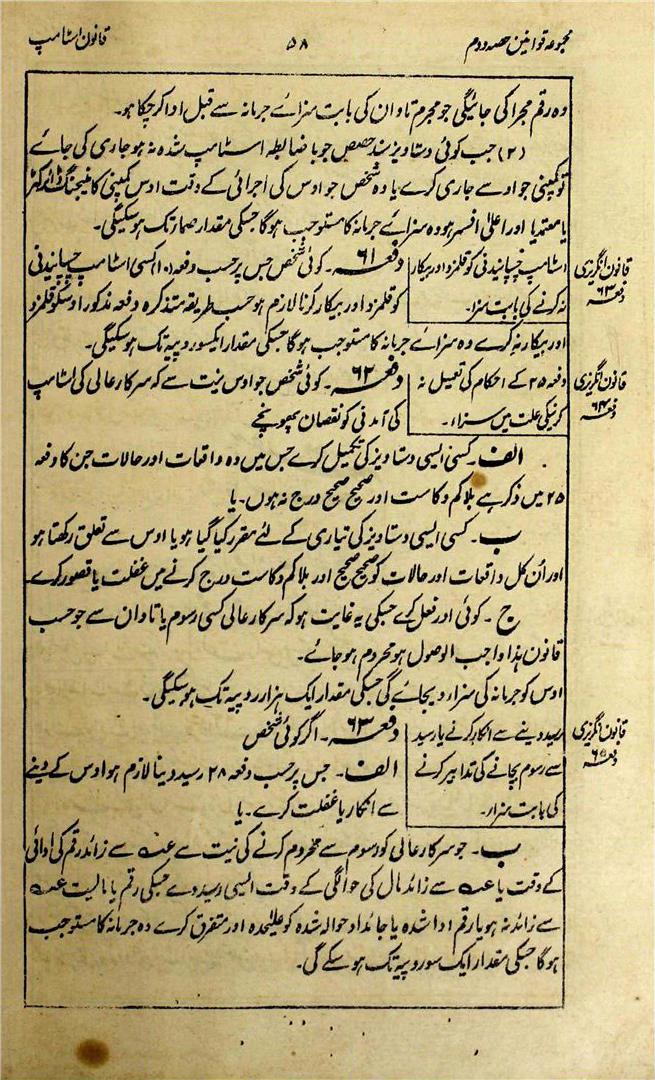 مجموعہ قوانین حصہ دوم
۵۸
قانون اسٹامپ
وہ رقم مجرا کی جائیگی جو مجرم تاوان کی بابت سزائے جرمانہ سے قبل ادا کر چکا ہو۔
(۲) جب کوئی دستاویز سند حصص جو با ضابطہ اسٹامپ شدہ نہ ہو جاری کی جائے
تو کمپنی جو اوسے جاری کرے یا وہ شخص جو اوس کی اجرائی کے وقت اوس کمپنی کا منیجنگ ڈائرکٹر
یا معتمد یا اور اعلیٰ افسر ہو وہ سزائے جرمانہ کا مستوجب ہوگا جسکی مقدار تک ہوسکیگی۔
قانون انگریزی
دفعہ ۶۳
اسٹامپ چسپانیدنی کو قلمزد اور بیکار
نہ کرنے کی بابت سزا۔
دفعہ ۶۱۔ کوئی شخص جس پر حسب دفعہ (۱۰) کسی اسٹامپ چسپانیدنی
کو قلمزد اور بیکار کرنا لازم ہو حسب طریقہ متذکرہ دفعہ مذکور اوسکو قلمزد
اور بیکار نہ کرے وہ سزائے جرمانہ کا مستوجب ہوگا جسکی مقدار ایکسو روپیہ تک ہوسکیگی۔
قانون انگریزی
دفعہ ۶۴
دفعہ ۲۵ کے احکام کی تعمیل نہ
کرنیکی علت میں سزاء۔
دفعہ ۶۲۔ کوئی شخص جو اوس نیت سے کہ سرکار عالی کی اسٹامپ
کی آمدنی کو نقصان پھونچے
الف۔ کسی ایسی دستاویز کی تکمیل کرے جس میں وہ واقعات اور حالات جن کا دفعہ
۲۵ میں ذکر ہے بلا کم و کاست اور صحیح صحیح درج نہ ہوں۔ یا
ب۔ کسی ایسی دستاویز کی تیاری کے لئے مقرر کیا گیا ہو یا اوس سے تعلق رکھتا ہو
اور اُن کل واقعات اور حالات کو صحیح صحیح اور بلا کم و کاست درج کرنے میں غفلت یا قصور کرے۔
ج۔ کوئی اور فعل کرے جسکی یہ غایت ہو کہ سرکار عالی کسی رسوم یا تاوان سے جو حسب
قانون ہذا واجب الوصول ہو محروم ہو جائے۔
اوس کو جرمانہ کی سزاء دیجائے گی جسکی مقدار ایک ہزار روپیہ تک ہوسکیگی۔
قانون انگریزی
دفعہ ۶۵
رسید دینے سے انکار کرنے یا رسید
سے رسوم بچانے کی تدابیر کرنے
کی بابت سزاء۔
دفعہ ۶۳۔ اگر کوئی شخص
الف۔ جس پر حسب دفعہ ۲۸ رسید دینا لازم ہو اوس کے دینے
سے انکار یا غفلت کرے۔ یا
ب۔ جو سرکار عالی کو رسوم سے محروم کرنے کی نیت سے سے زائد رقم کی ادائی
کے وقت یا سے زائد مال کی حوالگی کے وقت ایسی رسید دے جسکی رقم یا مالیت
سے زائد نہ ہو یا رقم ادا شدہ یا جائداد حوالہ شدہ کو علیٰحدہ اور متفرق کرے وہ جرمانہ کا مستوجب
ہوگا جسکی مقدار ایک سو روپیہ تک ہو سکے گی۔